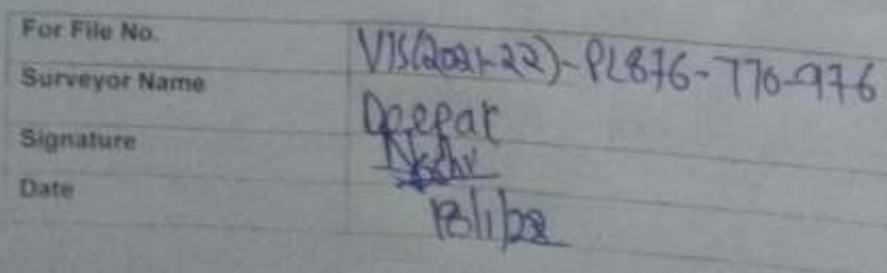 For File No. VIS(2021-22)-PL876-770-976
Surveyor Name Deepak
Signature
Date